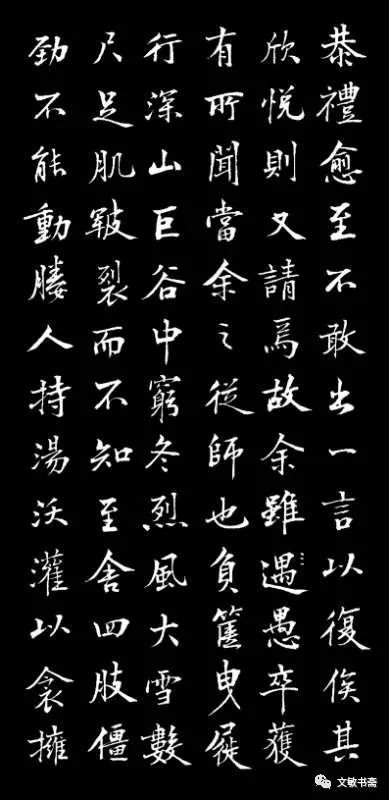 恭禮愈至不敢出一言以復俟其
欣悦則又請焉故余雖遇愚卒獲
有所聞當余之從師也負篋曳屣
行深山巨谷中窮冬烈風大雪數
尺足肌皸裂而不知至舍四肢僵
勁不能動媵人持湯沃灌以衾擁
文敏书斋